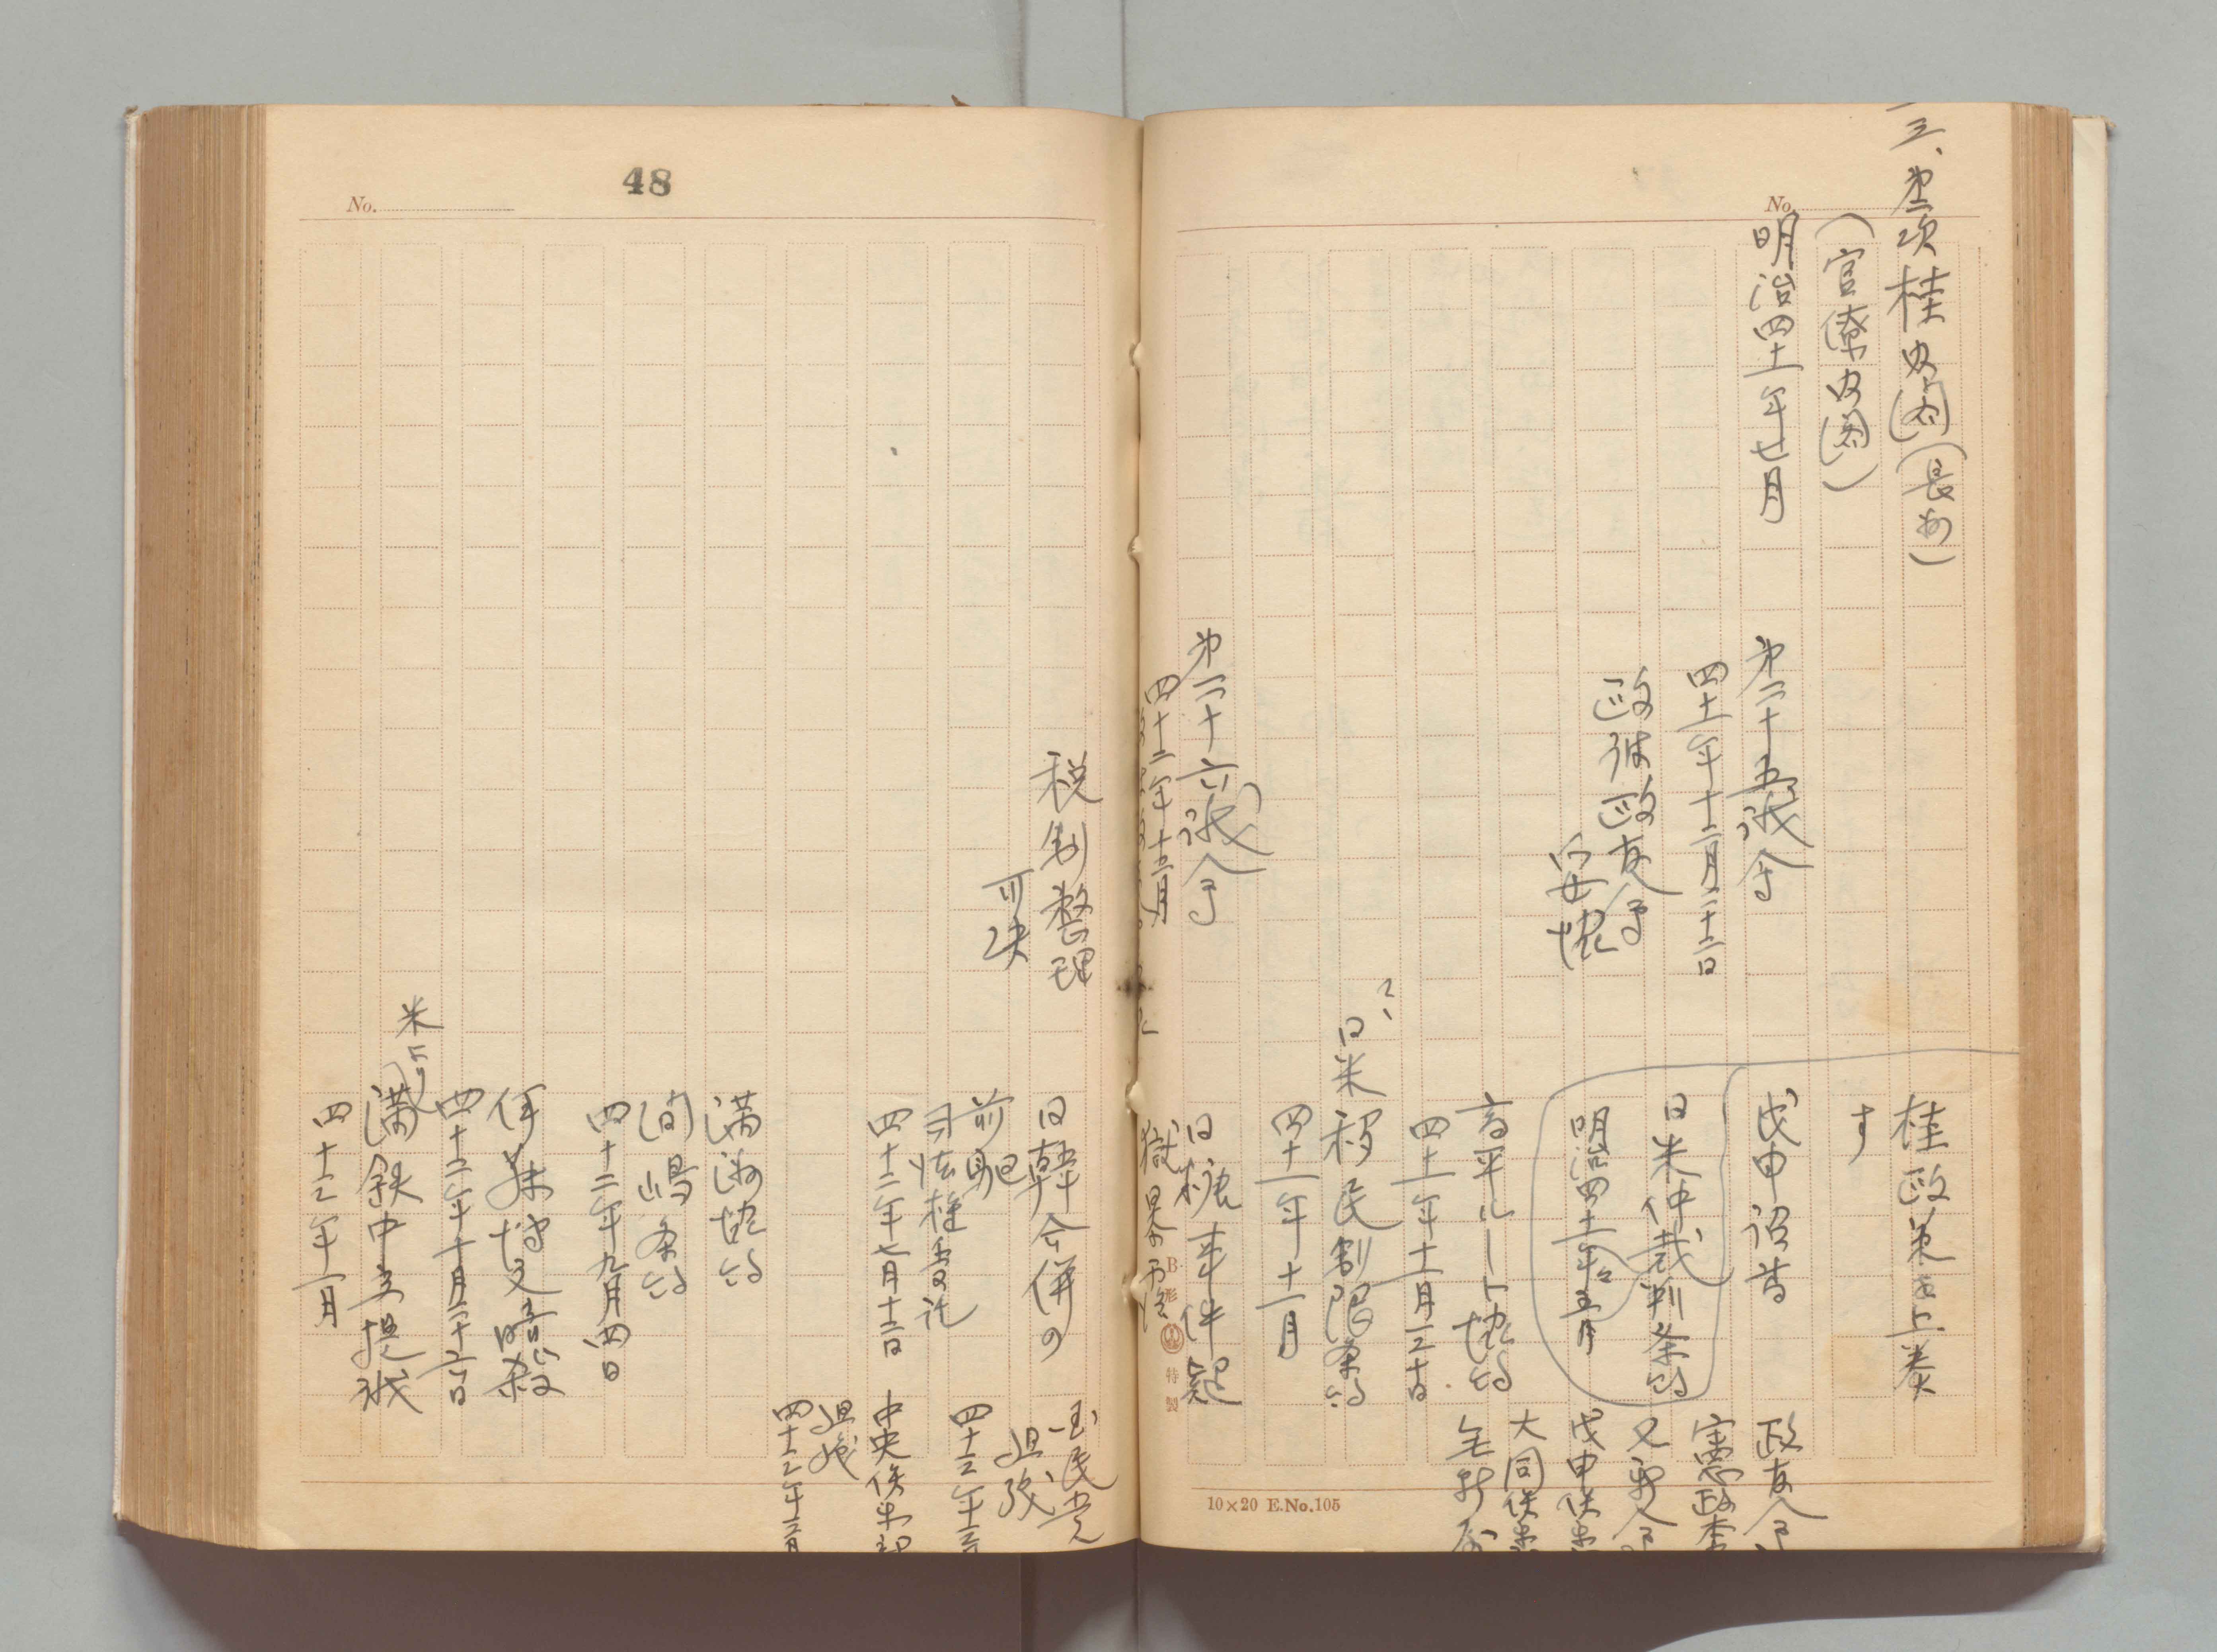 三、第二次桂内閣（長州）
（官僚内閣）
明治四十一年七月
第二十五議会
四十一年十二月二十二日
政府政友会
妥協
桂政策を上奏
す
戊申詔書
日米仲裁裁判条約
明治四十一年五月
高平ルート協約
四十一年十一月三十日
日米移民制限条約
四十一年十一月
政友会
憲政本
又新会
戊申倶楽
大同倶楽
無所属
No.
第二十六議会
四十二年十二月
日糖事件起
10×20 E.No.105
B形 特製
48
No.
税制整理
可決
日韓合併の
前駆
司法権委託
四十二年七月十二日
満洲協約
間嶋条約
四十二年九月四日
伊藤博文暗殺
四十二年十月二十六日
米より
満鉄中立提議
四十三年一月
国民党
組織
四十三年三
中央倶楽部
組織
四十三年三月